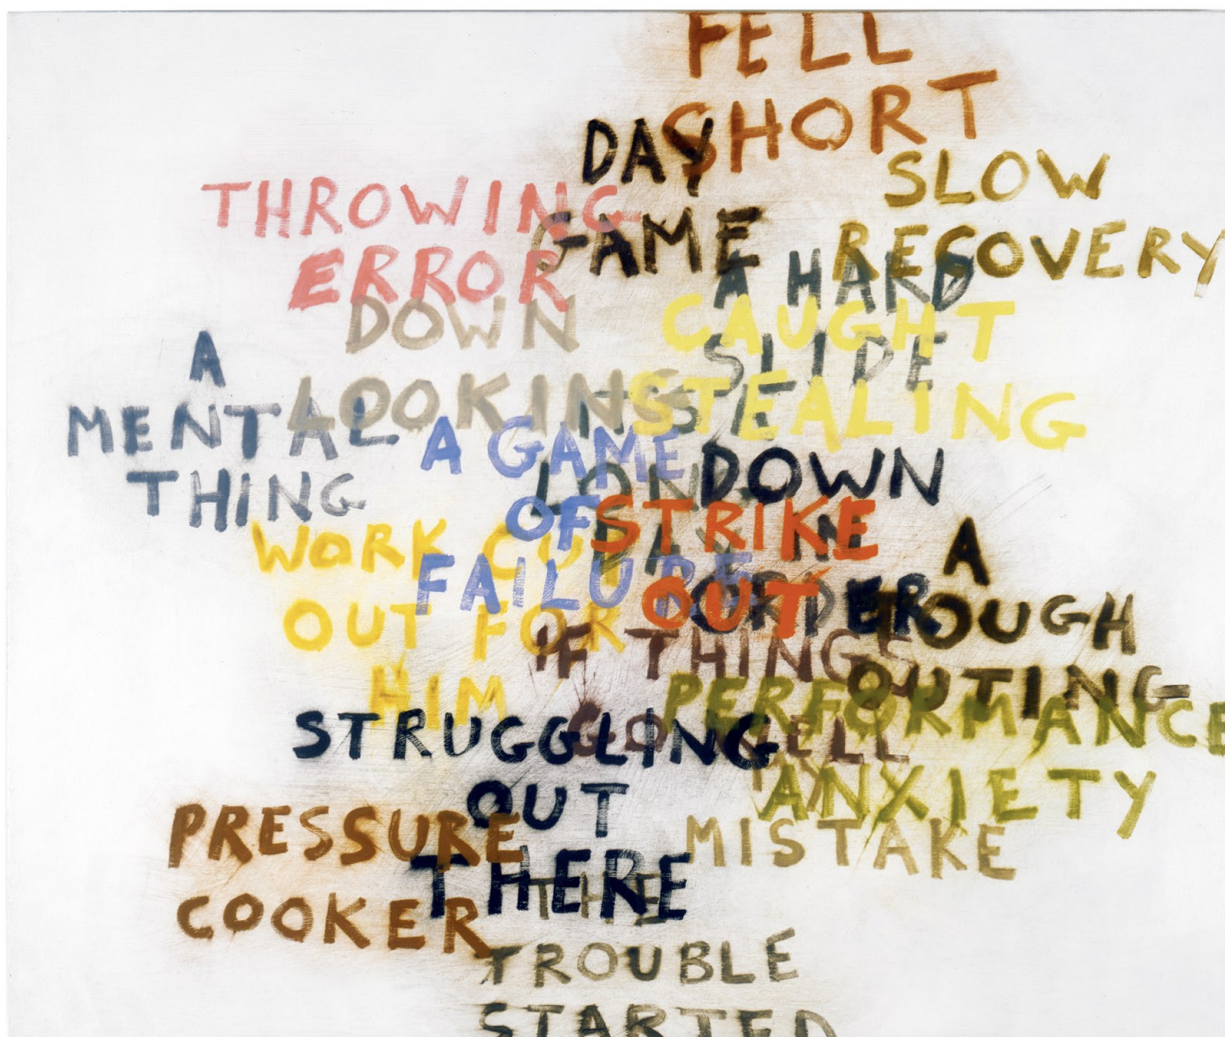 FELL
SHORT
DAY
GAME
SLOW
RECOVERY
THROWING
ERROR
A HARD
SLIDE
DOWN
LOOKING
CAUGHT
STEALING
A
MENTAL
THING
A GAME
OF
FAILURE
DOWN
IN
ORDER
STRIKE
OUT
WORK CUT
OUT FOR
HIM
A
TOUGH
OUTING
IF THINGS
GO WELL
PERFORMANCE
ANXIETY
STRUGGLING
OUT
THERE
MISTAKE
PRESSURE
COOKER
THE
TROUBLE
STARTED